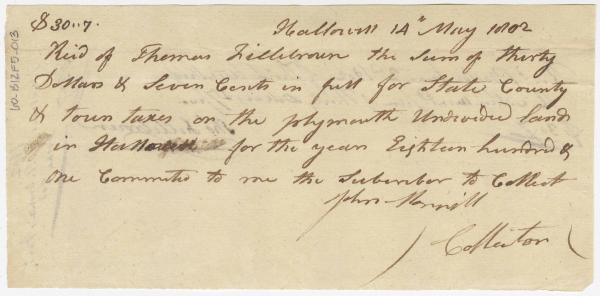 $30..7.
Hallowell 14th May 1802
Recd of Thomas Fillebrown the sum of thirty
Dollars & Seven Cents in full for State County
& town taxes on the plymouth Undivided lands
in Hallowell for the year Eighteen hundred &
one Committed to me the Subscriber to Collect
John
Collector
60-B12F5-013